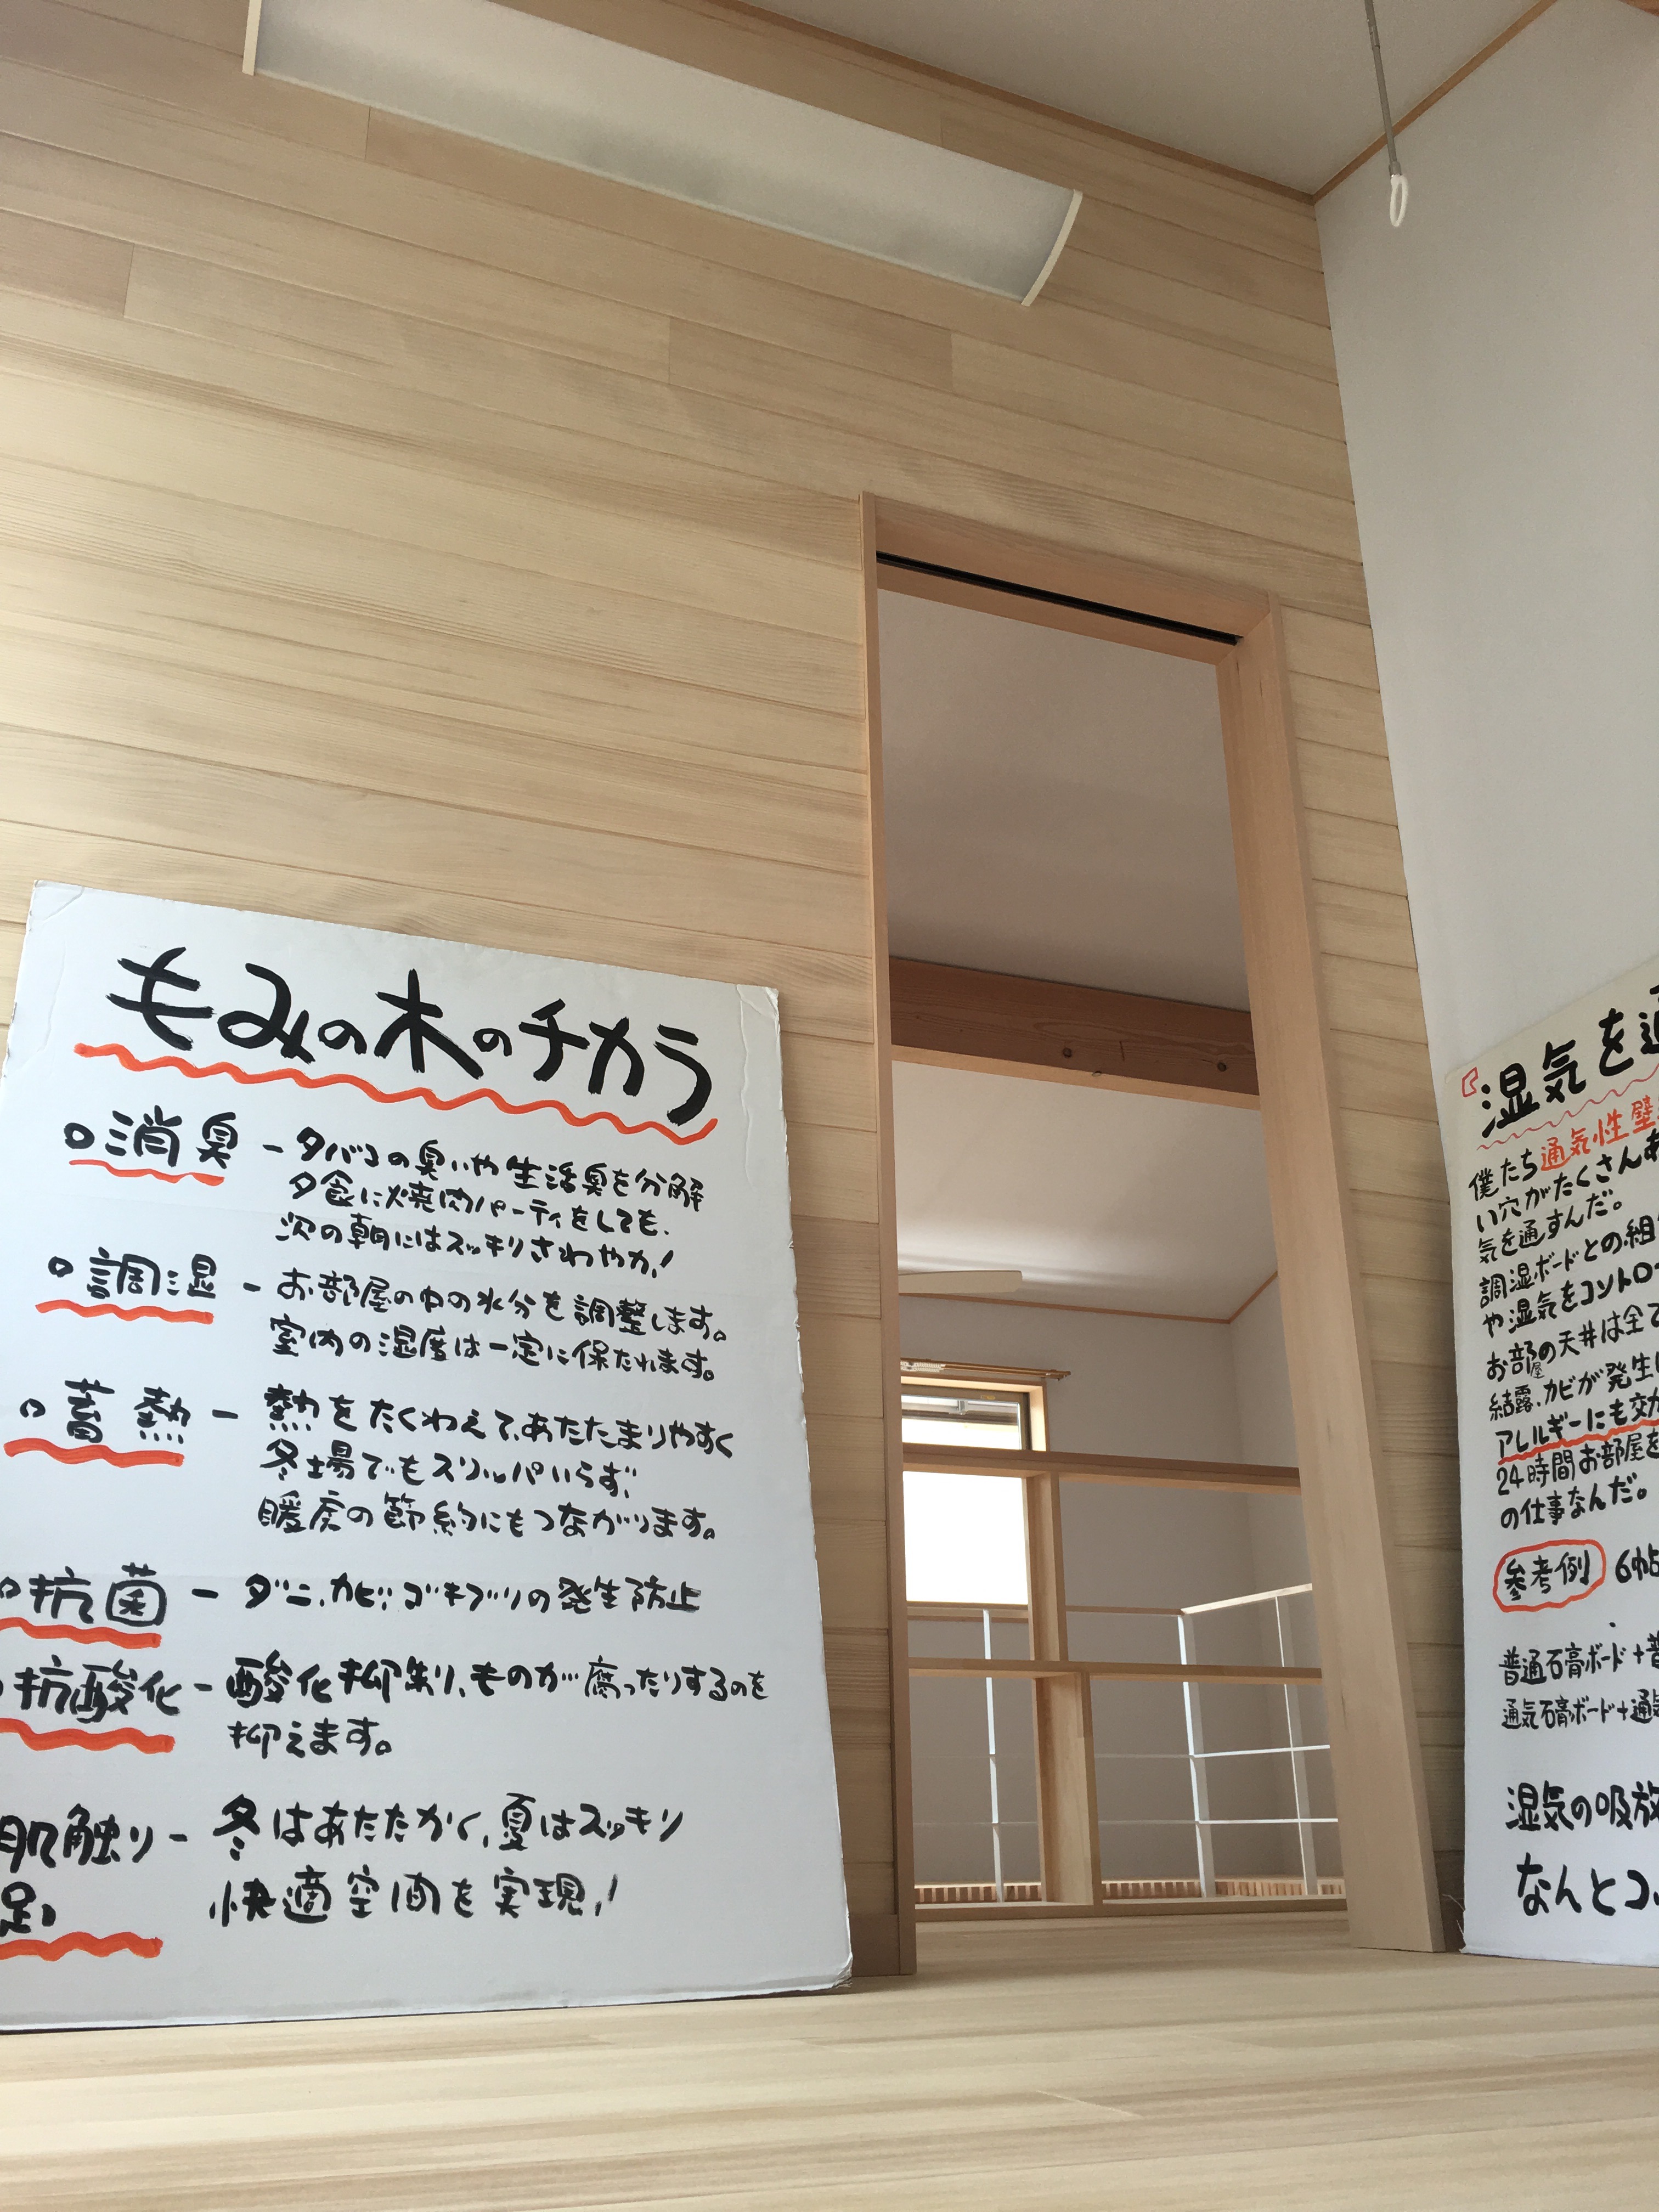 もみの木のチカラ
○消臭 - タバコの臭いや生活臭を分解
夕食に焼肉パーティをしても、
次の朝にはスッキリさわやか!
○調湿 - お部屋の中の水分を調整します。
室内の湿度は一定に保たれます。
○蓄熱 - 熱をたくわえて、あたたまりやすく
冬場でもスリッパいらず、
暖房の節約にもつながります。
○抗菌 - ダニ、カビ、ゴキブリの発生防止
抗酸化 - 酸化抑制、ものが腐ったりするのを
抑えます。
肌触り - 冬はあたたかく、夏はスッキリ
快適空間を実現!
湿気を通
僕たち通気性壁
い穴がたくさんあ
気を通すんだ。
調湿ボードとの組
や湿気をコントロー
お部屋の天井は全て
結露、カビが発生し
アレルギーにも効
24時間お部屋を
の仕事なんだ。
参考例 6帖
普通石膏ボード+普
通気石膏ボード+通気
湿気の吸放
なんとコ